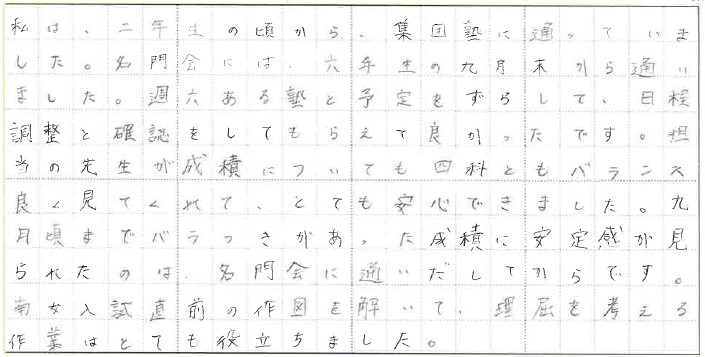 私は、二年生の頃から、集団塾に通っていま
した。名門会には、六年生の九月末から通い
ました。週六ある塾と予定をずらして、日程
調整と確認をしてもらえて良かったです。担
当の先生が成積についても四科ともバランス
良く見てくれて、とても安心できました。九
月頃までバラつきがあった成積に安定感が見
られたのは、名門会に通いだしてからです。
南女入試直前の作図を解いて、理屈を考える
作業はとても役立ちました。